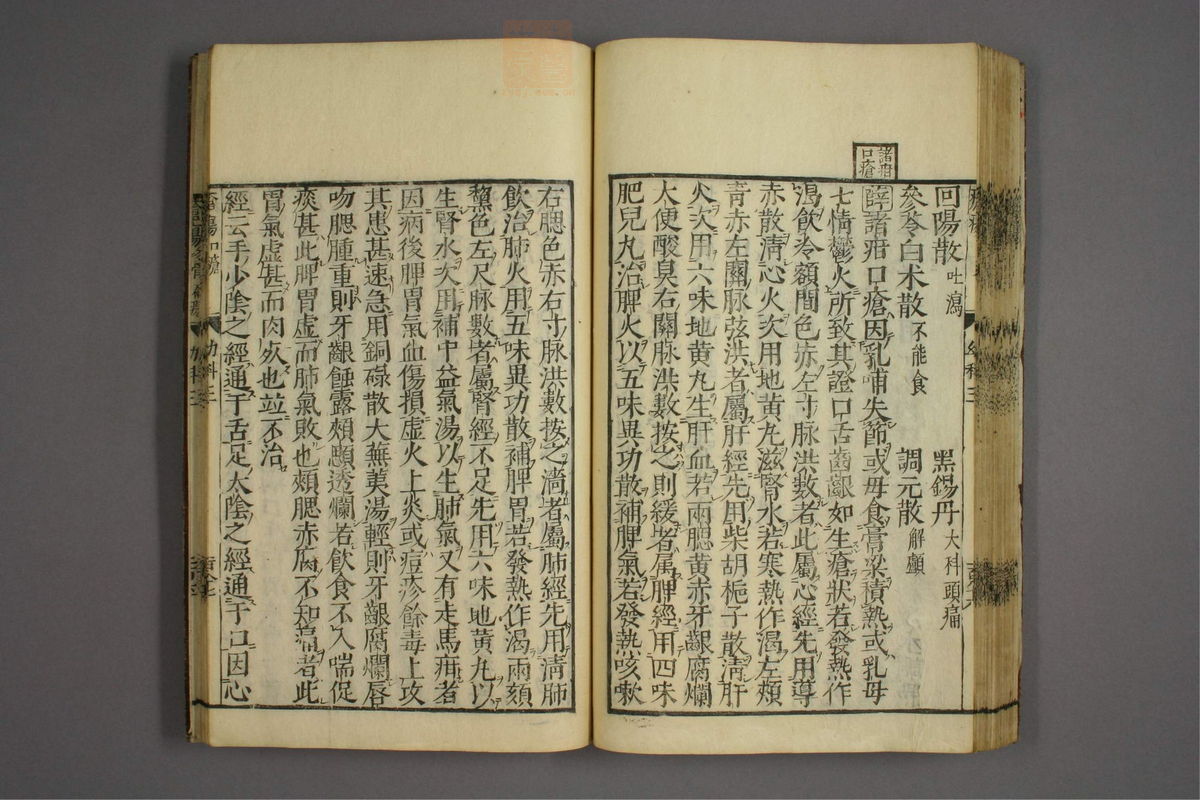 諸疳
口瘡
回陽散 吐瀉 黑錫丹 大科頭痛
參苓白术散 不能食 調元散 解顱
薛諸疳口瘡因乳哺失節或母食膏粱積熱或乳母
七情鬱火所致其證口舌齒齦如生瘡狀若發熱作
渴飲冷額間色赤左寸脉洪數者此屬心經先用導
赤散清心火次用地黄丸滋腎水若寒熱作渴左頰
青赤左關脉弦洪者屬肝經先用柴胡梔子散清肝
火次用六味地黄丸生肝血若兩腮黄赤牙齦腐爛
大便酸臭右關脉洪數按之則緩者属脾經用四味
肥兒丸治脾火以五味異功散補脾氣若發熱咳嗽
右腮色赤右寸脉洪數按之濇者屬肺經先用清肺
飲治肺火用五味異功散補脾胃若發熱作渴兩頦
黧色左尺脉數者屬腎經不足先用六味地黄丸以
生腎水次用補中益氣湯以生肺氣又有走馬疳者
因病後脾胃氣血傷損虚火上炎或痘疹餘毒上攻
其患甚速急用銅碌散大蕪荑湯輕則牙齦腐爛唇
吻腮腫重則牙齦蝕露頰顋透爛若飲食不入喘促
痰甚此脾胃虚而肺氣敗也頰腮赤腐不知痛者此
胃氣虚甚而肉死也竝不治
經云手少陰之經通于舌足太陰之經通于口因心
幼科三